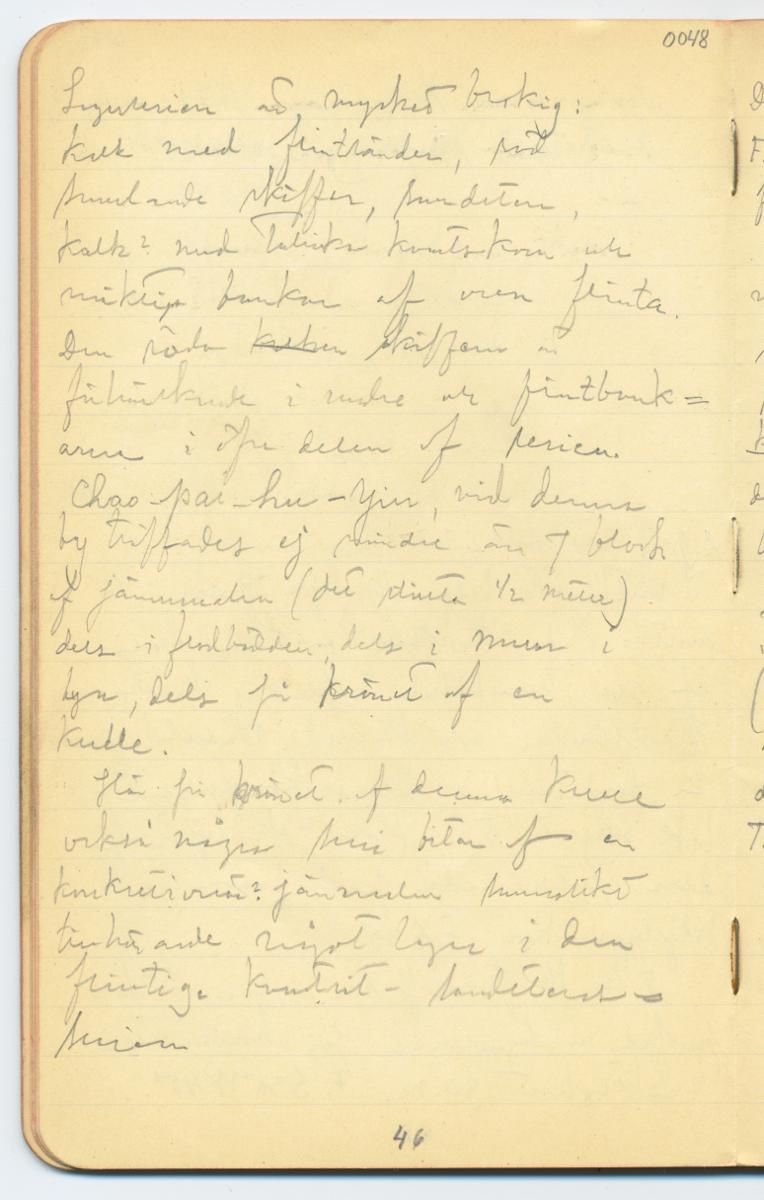 0048
Lagserien är mycket brokig:
kalk med flintränder, röd
smulande skiffer, sandsten,
kalk? med talrika kvartskorn och
mäktiga bankar af oren flinta.
Den röda kalken skiffern är
förhärskande i nedre och flintbank=
arna i öfre delen af serien.
Chao-pai-hu-yin, vid denna
by träffades ej mindre än 7 block
af järnmalm (det största 1/2 meter)
dels i flodbädden, dels i murar i
byn, dels på krönet af en
kulle.
Här på krönet af denna kulle
också några små bitar af en
konkretionär? järnmalm sannolikt
tillhörande något lager i den
flintiga kvartsit- sandstens=
serien
46